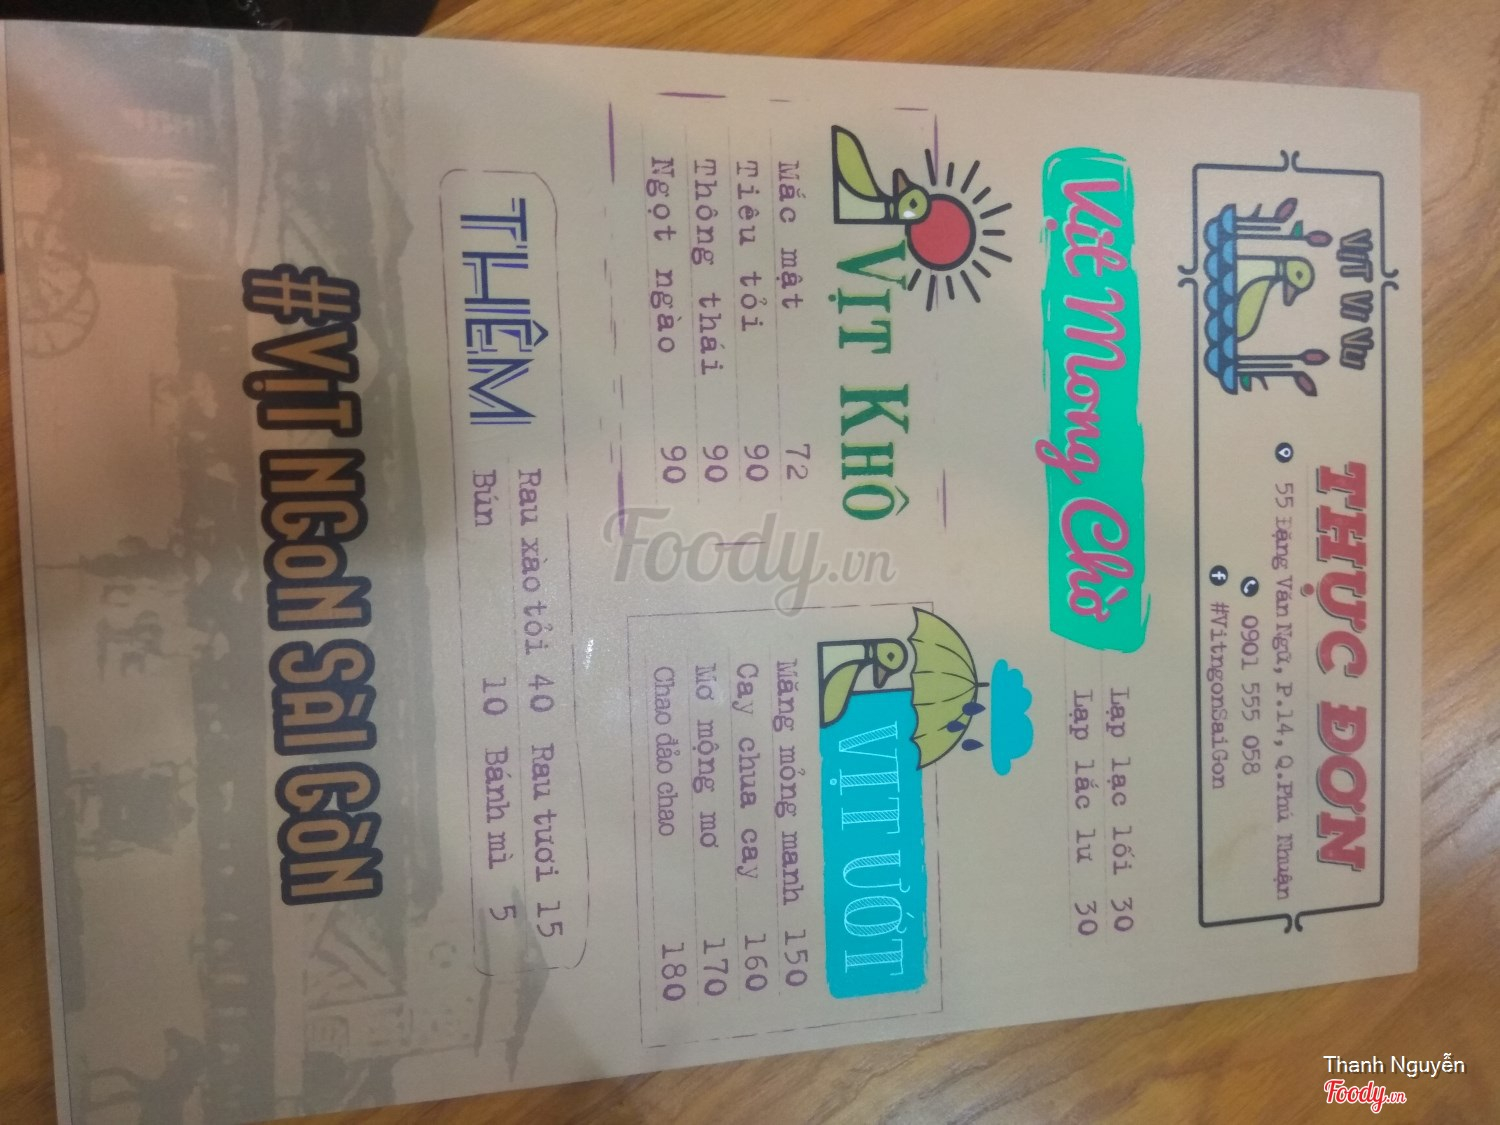 VịT Vi Vu
THỰC ĐƠN
55 Đặng Văn Ngữ, P.14, Q.Phú Nhuận
0901 555 058
#VitngonSaiGon
Vịt Mong Chờ
Lạp lạc lối 30
Lạp lắc lư 30
VỊT KHÔ
Mắc mật 72
Tiêu tỏi 90
Thông thái 90
Ngọt ngào 90
VỊT ƯỚT
Măng mỏng manh 150
Cay chua cay 160
Mơ mộng mơ 170
Chao đảo chao 180
THÊM
Rau xào tỏi 40 Rau tươi 15
Bún 10 Bánh mì 5
#VịT NGoN SÀI GÒN
Foody.vn
Thanh Nguyễn
Foody.vn